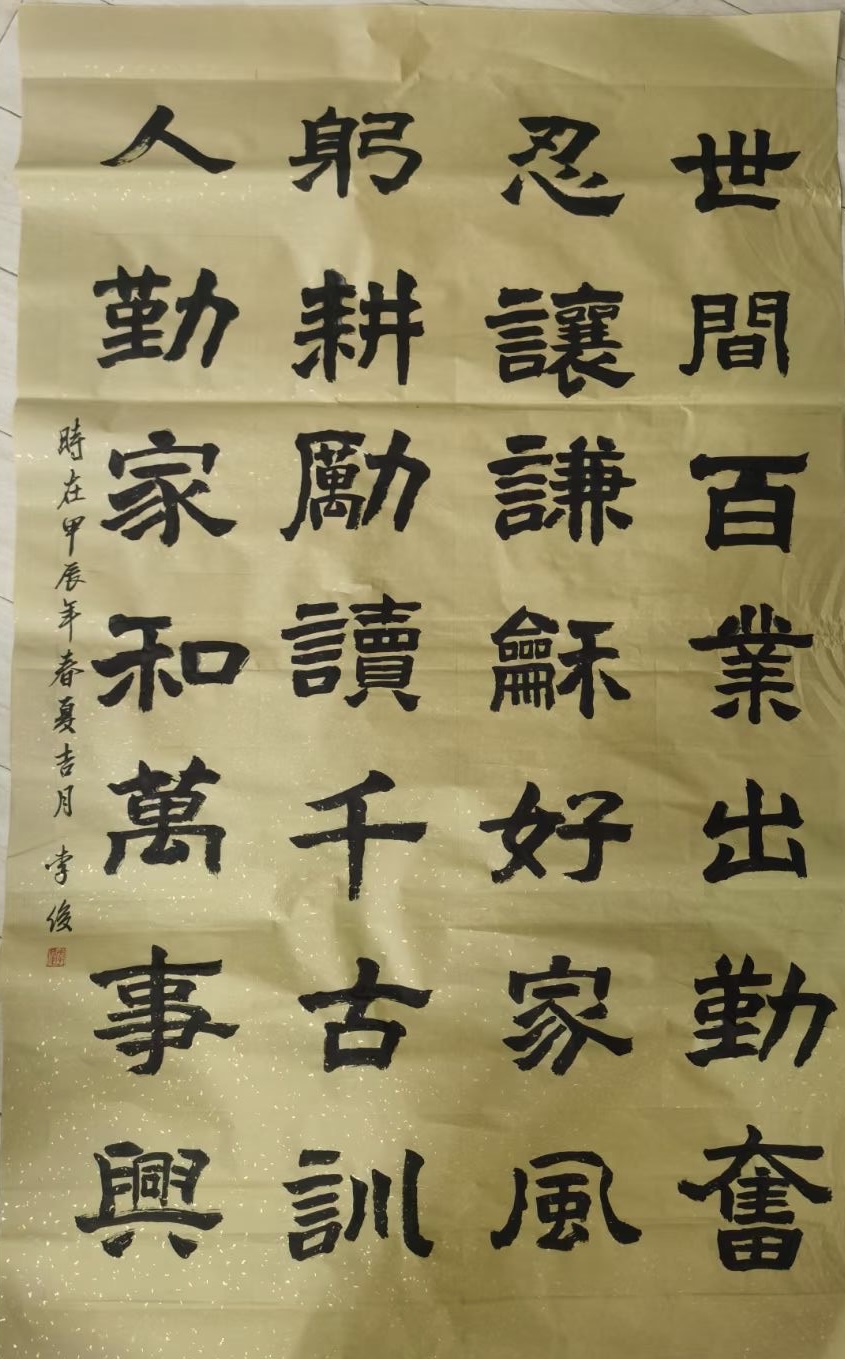 世間百業出勤奮
忍讓謙龢好家風
躬耕勵讀千古訓
人勤家和萬事興
時在甲辰年春夏吉月 李俊